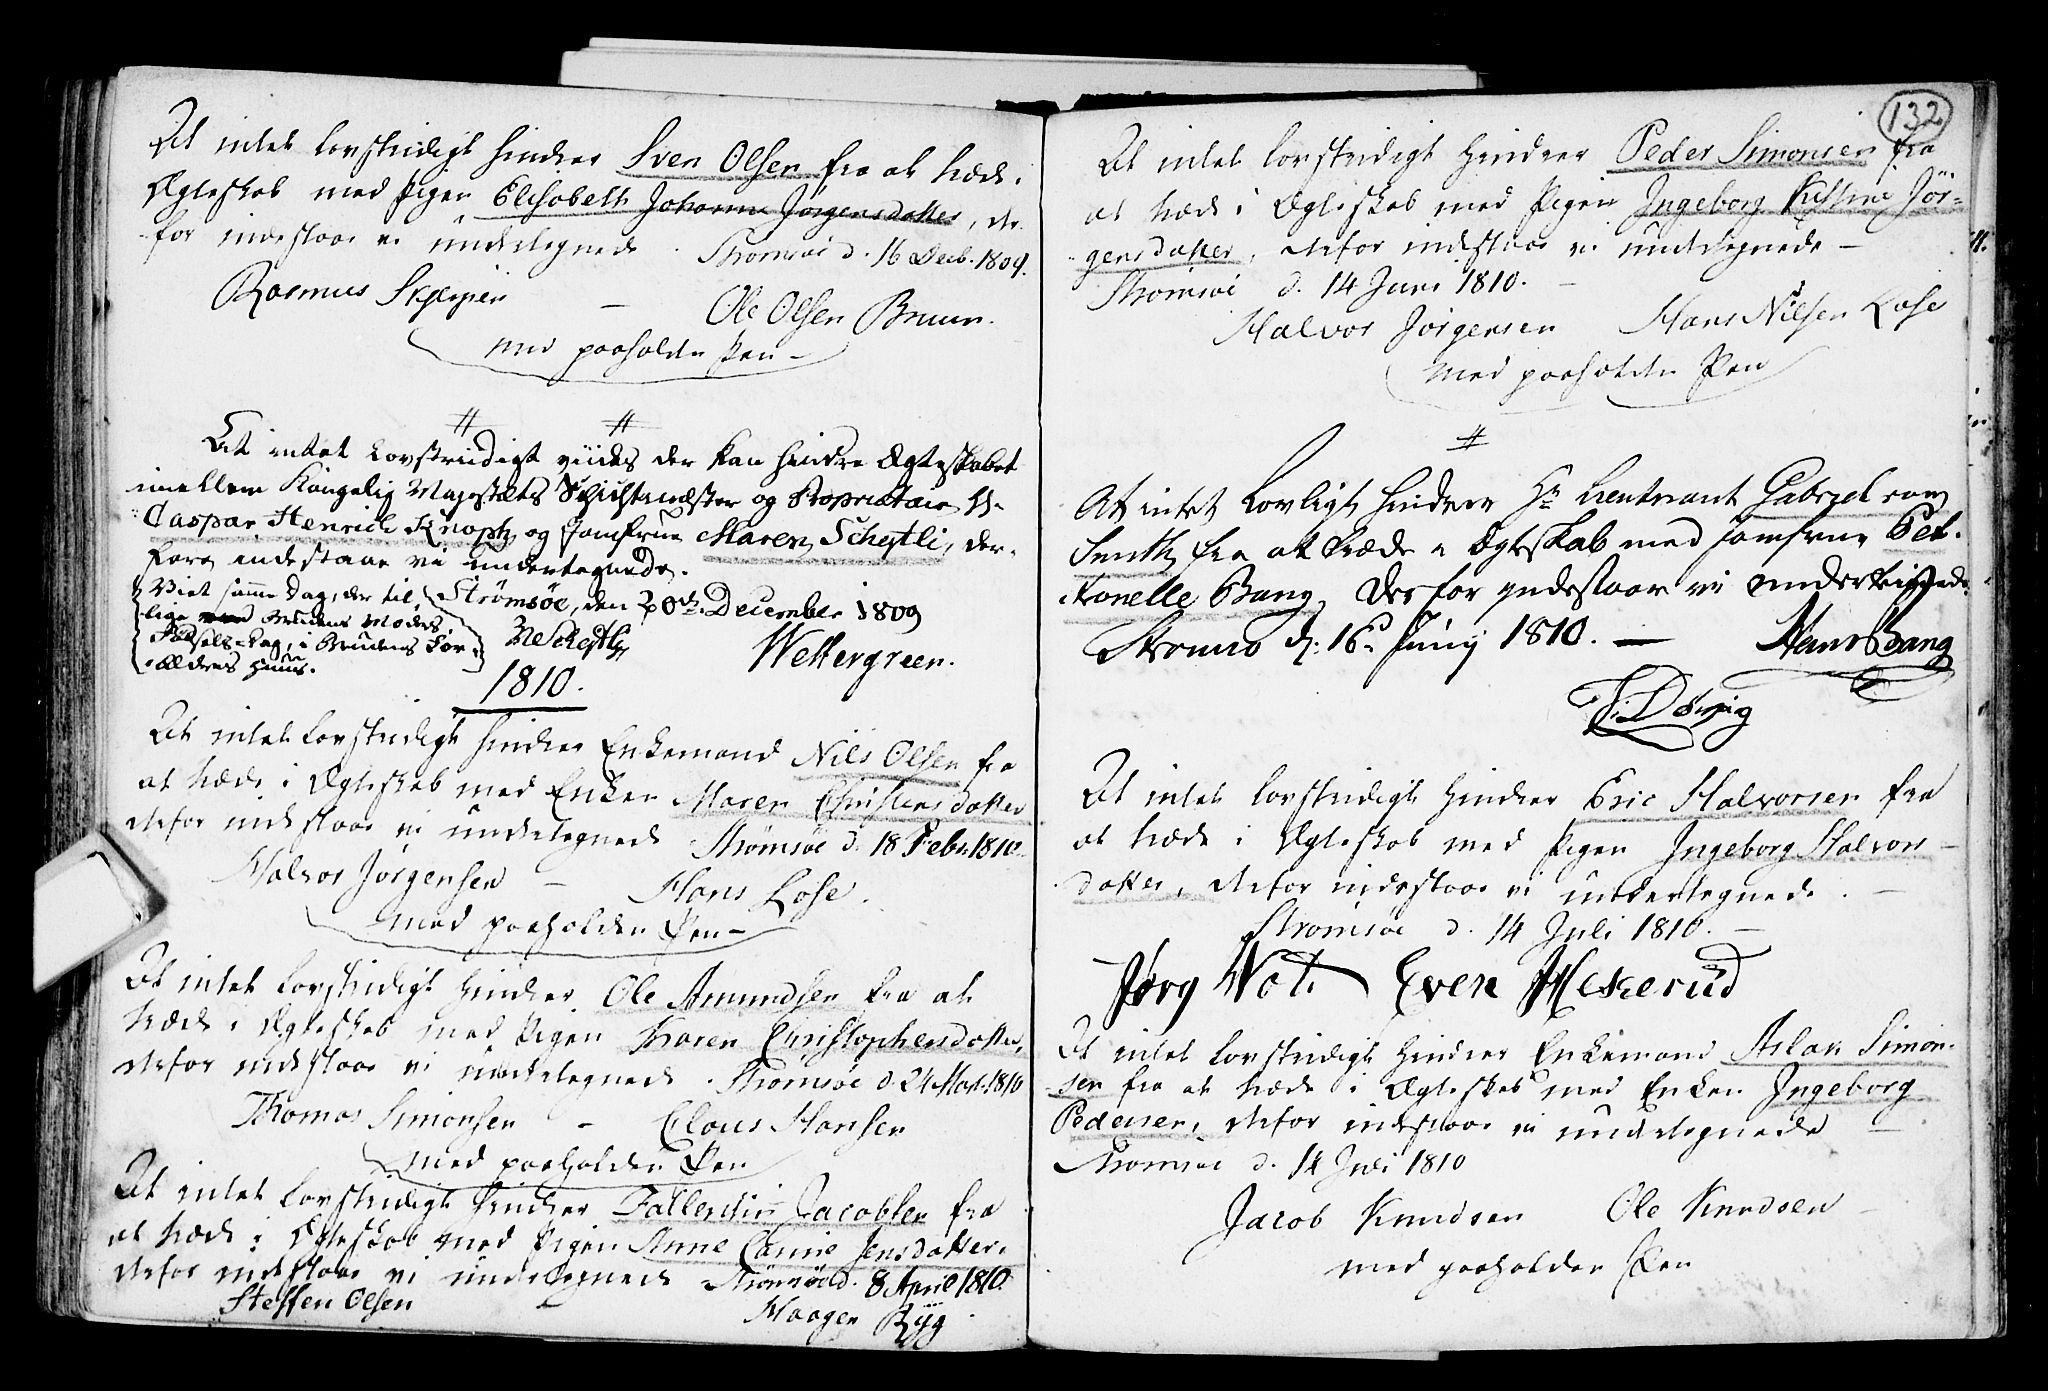 At intet lovstridigt hindrer Sven Olsen fra at træde i
Ægteskab med Pigen Elisabeth Johanne Jørgensdatter, der-
for indestaae vi undertegnede. Strømsøe d. 16 Decb. 1809.
Rasmus - Ole Olsen Bruun.
med paaholden Pen -
At intet Lovstridigt viides der kan hindre Ægteskabet
imellem Kongelig Majestæts og Proprietair Hr
Caspar Henrich Knoph og Jomfrue Maren Schejtli, der-
fore indestaae vi undertegnede.
Strømsøe, den 20de December 1809
Viet samme Dag, der til-
lige med Brudens Moders
Fødsels-Dag, i Brudens For-
ældres Huus.
Schejtli Wettergreen.
1810.
At intet lovstridigt hindrer Enkemand Nils Olsen fra
at træde i Ægteskab med Enken Maren Christensdatter
derfor indestaae vi undertegnede Strømsøe d. 18 Febr. 1810.
Halvor Jørgensen - Hans Lose.
med paaholden Pen -
At intet lovstridigt hindrer Ole Amundsen fra at
træde i Ægteskab med Pigen Karen Christophersdatter,
derfor indestaae vi undertegnede. Strømsøe d. 24 Mart. 1810
Thomas Simonsen - Claus Hansen
med paaholden Pen
At intet lovstridigt hindrer Fallentin Jacobsen fra
at træde i Ægteskab med Pigen Anne Carine Jensdatter,
derfor indestaae vi undertegnede Strømsøe d. 8 April 1810.
Steffen Olsen Haagen Ryg
132
At intet lovstridigt hindrer Peder Simonsen fra
at træde i Ægteskab med Pigen Ingeborg Kistine Jør-
gensdatter, derfor indestaae vi undertegnede -
Strømsøe d. 14 Juni 1810. -
Halvor Jørgensen Hans Nilsen Lose
med paaholden Pen
At intet Lovligt hindrer Hr Lieutenant Gabriel
Smith fra at træde i Ægteskab med Jomfrue Pet-
ronelle Bang, derfor indestaar vi undertegnede.
Strømsø d: 16d Junij 1810. - Hans Bang
At intet lovstridigt hindrer Eric Halvorsen fra
at træde i Ægteskab med Pigen Ingeborg Halvors-
datter, derfor indestaae vi undertegnede. -
Strømsøe d. 14 Juli 1810. -
Jørg Even
At intet lovstridigt hindrer Enkemand Aslak Simon-
sen fra at træde i Ægteskab med Enken Ingeborg
Pedersen, derfor indestaae vi undertegnede -
Strømsøe d. 14 Juli 1810
Jacob Knudsen Ole Knudsen -
med paaholden Pen